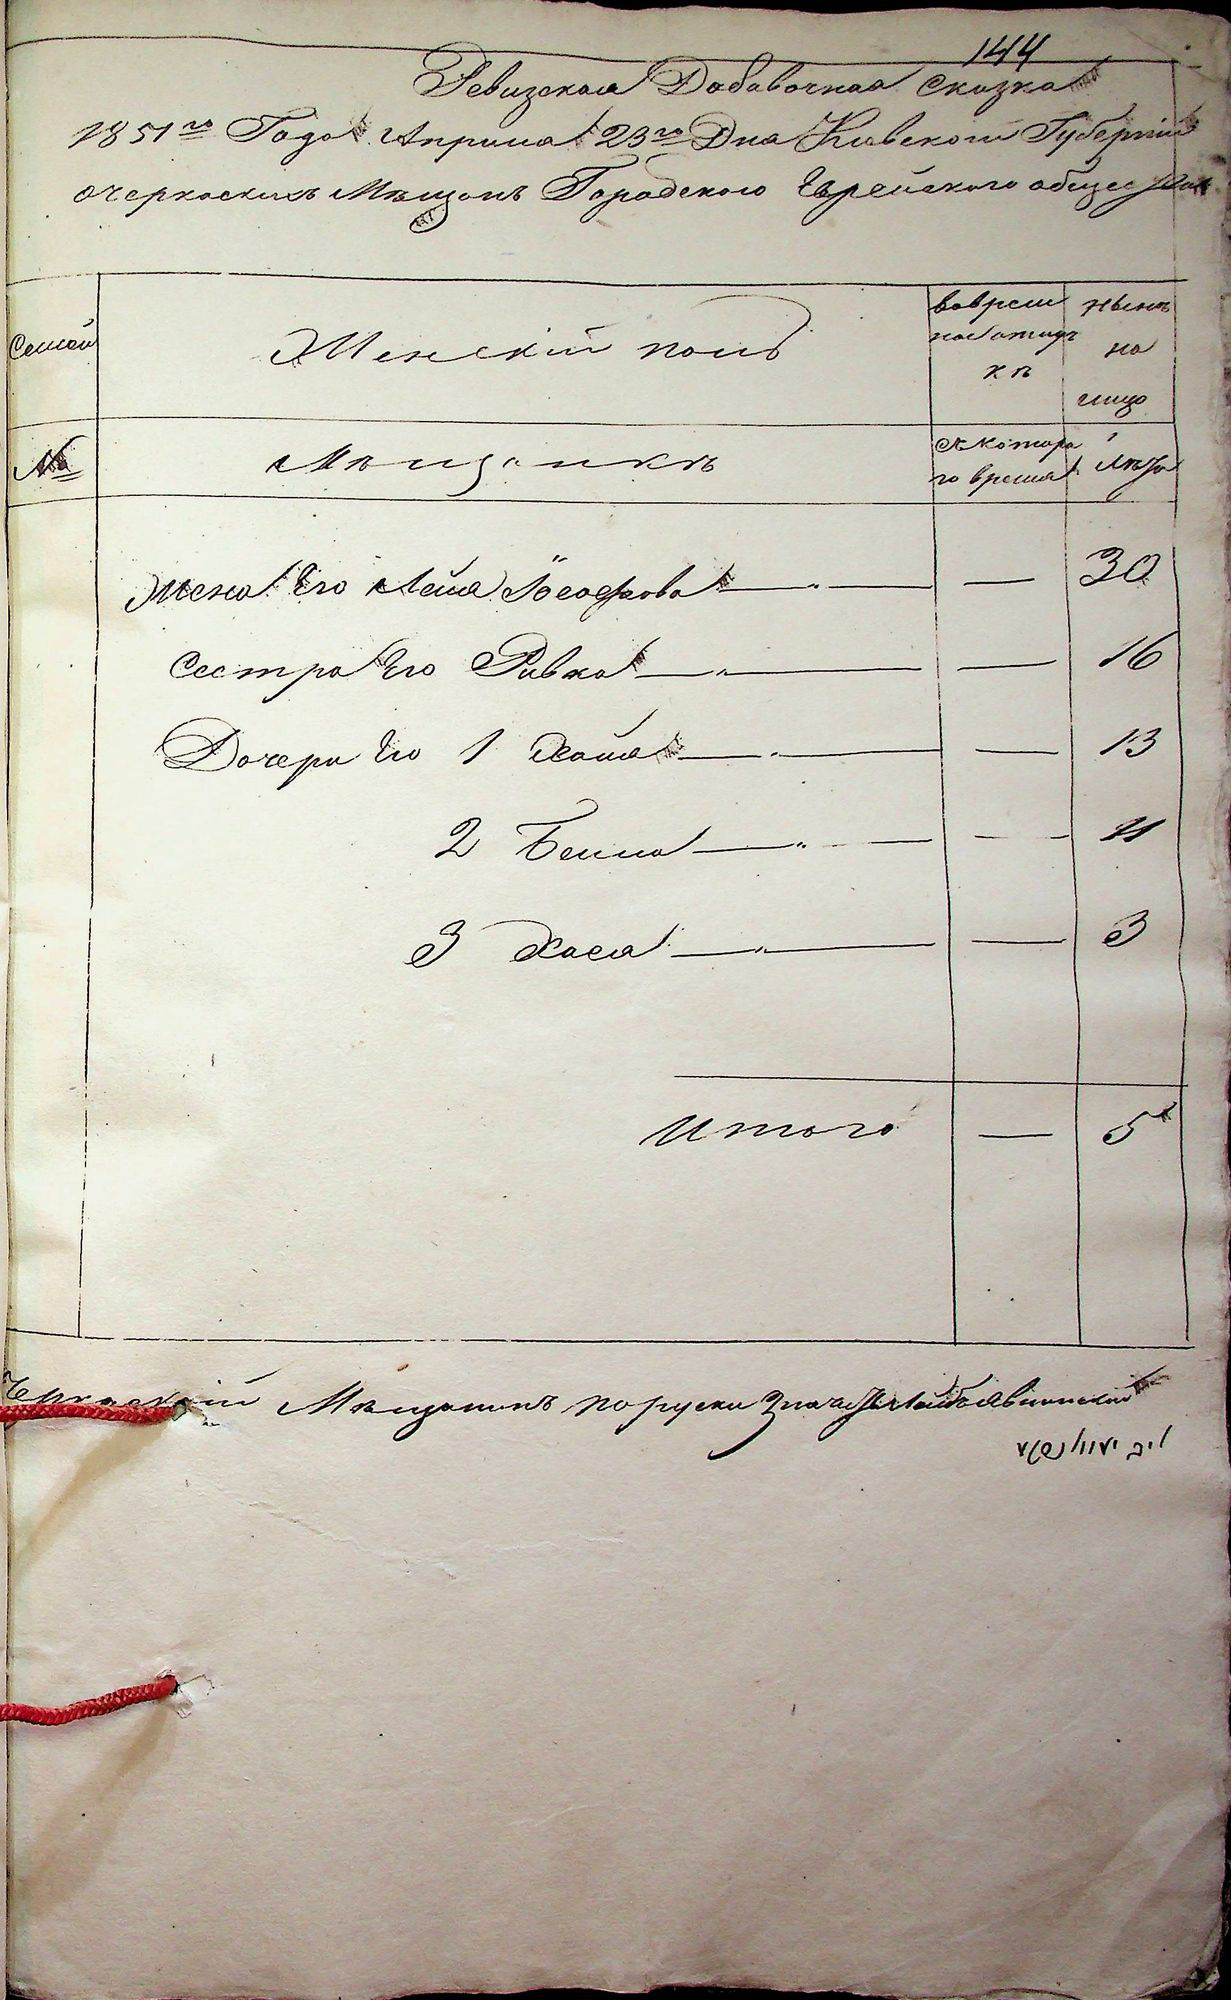 144
Ревизская Добавочная Сказка
1851го Года Априля 23го Дня Киевской Губернии
очеркаскихъ Мѣщанъ Городского Еврейского общества
Семей
Женскій полъ
вовремя
отлуч
кѣ
Нынѣ
на
лицо
№
Мѣщанкѣ
с котора
го время
Лѣта
Жена Его Лейя — " — — 30
Сестра Его Ривка — " — — 16
Дочери Его 1 Хайя — " — — 13
2 Бейла — " — — 11
3 Хася — " — — 3
Итого — 5
Черкаский Мѣщанинъ поруски Значитъ Лейба
ליב